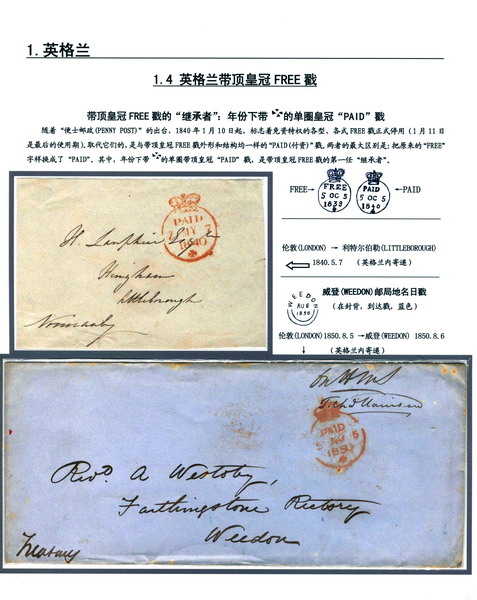 1.英格兰
1.4 英格兰带顶皇冠 FREE 戳
带顶皇冠 FREE 戳的“继承者”：年份下带 的单圈皇冠“PAID”戳
随着“便士邮政(PENNY POST)”的出台，1840 年 1 月 10 日起，标志着免资特权的各型、各式 FREE 戳正式停用（1 月 11 日
是最后的使用期），取代它们的，是与带顶皇冠 FREE 戳外形和结构均一样的“PAID(付资)”戳，两者的最大区别是：把原来的“FREE”
字样换成了“PAID”。其中，年份下带 的单圈带顶皇冠“PAID”戳，是带顶皇冠 FREE 戳的第一任“继承者”。
FREE→
FREE
5 OC 5
1839
PAID
5 OC 5
1840
←PAID
伦敦(LONDON) → 利特尔伯勒(LITTLEBOROUGH)
1840.5.7 （英格兰内寄递）
威登(WEEDON)邮局地名日戳
（在封背，到达戳，蓝色）
WEEDON
AU 6
1850
伦敦(LONDON)1850.8.5 →威登(WEEDON) 1850.8.6
（英格兰内寄递）
PAID
7 7
1840
Hingham
Littleborough
Normanby
PAID
5 AU 5
185
Revd. A Westoby,
Farthingstone Rectory
Weedon
Treasury